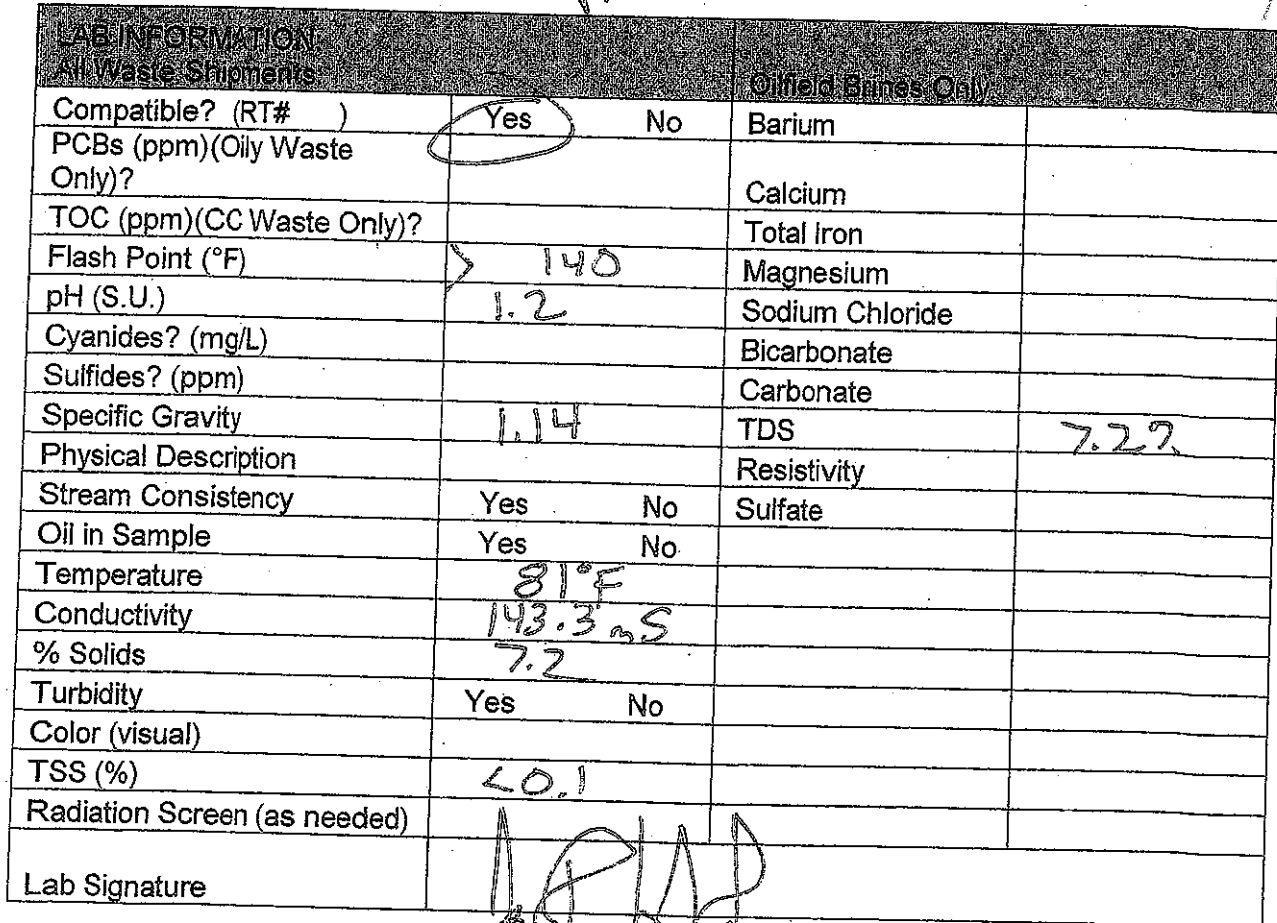 LAB INFORMATION
All Waste Shipments Oilfield Brines Only
Compatible? (RT# ) Yes No Barium
PCBs (ppm)(Oily Waste
Only)? Calcium
TOC (ppm)(CC Waste Only)? Total Iron
Flash Point (°F) > 140 Magnesium
pH (S.U.) 1.2 Sodium Chloride
Cyanides? (mg/L) Bicarbonate
Sulfides? (ppm) Carbonate
Specific Gravity 1.14 TDS
Physical Description Resistivity
Stream Consistency Yes No Sulfate
Oil in Sample Yes No
Temperature 81°F
Conductivity 143.3 mS
% Solids 7.2
Turbidity Yes No
Color (visual)
TSS (%) <0.1
Radiation Screen (as needed)
Lab Signature